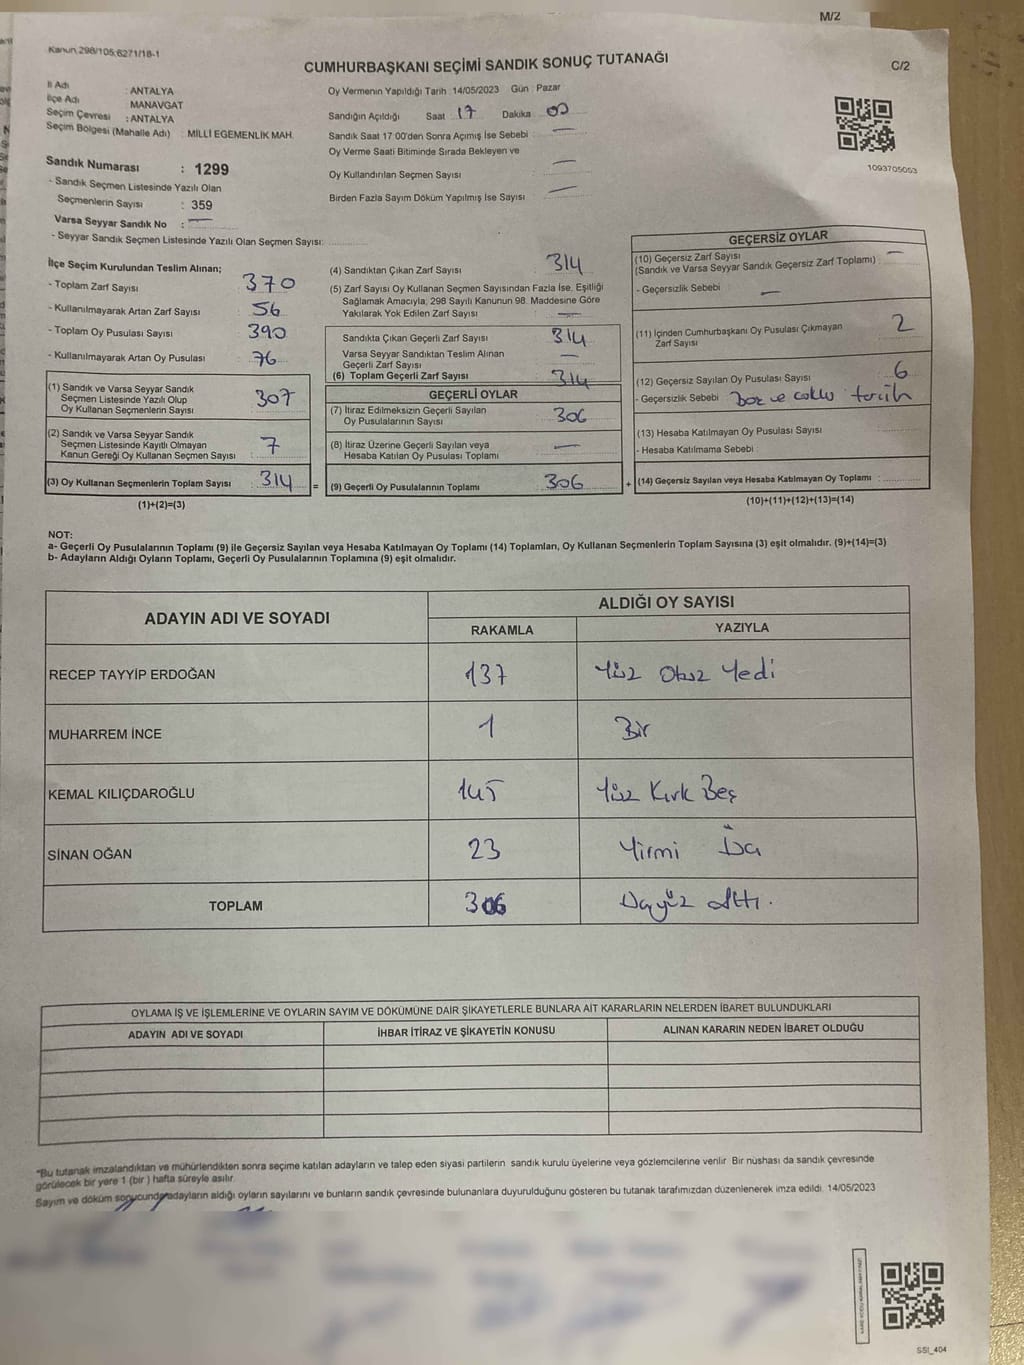 M/2
Kanun 298/105;6271/18-1
CUMHURBAŞKANI SEÇİMİ SANDIK SONUÇ TUTANAĞI
C/2
İl Adı : ANTALYA
İlçe Adı : MANAVGAT
Seçim Çevresi : ANTALYA
Seçim Bölgesi (Mahalle Adı) : MİLLİ EGEMENLİK MAH.
Oy Vermenin Yapıldığı Tarih 14/05/2023 Gün Pazar
Sandığın Açıldığı Saat 17 Dakika 00
Sandık Saat 17:00'den Sonra Açılmış İse Sebebi —
Oy Verme Saati Bitiminde Sırada Bekleyen ve
Oy Kullandırılan Seçmen Sayısı —
Birden Fazla Sayım Döküm Yapılmış İse Sayısı —
1093705053
Sandık Numarası : 1299
- Sandık Seçmen Listesinde Yazılı Olan
Seçmenlerin Sayısı : 359
Varsa Seyyar Sandık No : —
- Seyyar Sandık Seçmen Listesinde Yazılı Olan Seçmen Sayısı:
İlçe Seçim Kurulundan Teslim Alınan;
- Toplam Zarf Sayısı 370
- Kullanılmayarak Artan Zarf Sayısı 56
- Toplam Oy Pusulası Sayısı 390
- Kullanılmayarak Artan Oy Pusulası 76
(1) Sandık ve Varsa Seyyar Sandık
Seçmen Listesinde Yazılı Olup
Oy Kullanan Seçmenlerin Sayısı 307
(2) Sandık ve Varsa Seyyar Sandık
Seçmen Listesinde Kayıtlı Olmayan
Kanun Gereği Oy Kullanan Seçmen Sayısı 7
(3) Oy Kullanan Seçmenlerin Toplam Sayısı 314
(1)+(2)=(3)
(4) Sandıktan Çıkan Zarf Sayısı 314
(5) Zarf Sayısı Oy Kullanan Seçmen Sayısından Fazla İse, Eşitliği
Sağlamak Amacıyla; 298 Sayılı Kanunun 98. Maddesine Göre
Yakılarak Yok Edilen Zarf Sayısı —
Sandıkta Çıkan Geçerli Zarf Sayısı 314
Varsa Seyyar Sandıktan Teslim Alınan
Geçerli Zarf Sayısı —
(6) Toplam Geçerli Zarf Sayısı 314
GEÇERLİ OYLAR
(7) İtiraz Edilmeksizin Geçerli Sayılan
Oy Pusulalarının Sayısı 306
(8) İtiraz Üzerine Geçerli Sayılan veya
Hesaba Katılan Oy Pusulası Toplamı —
= (9) Geçerli Oy Pusulalarının Toplamı 306
GEÇERSİZ OYLAR
(10) Geçersiz Zarf Sayısı
(Sandık ve Varsa Seyyar Sandık Geçersiz Zarf Toplamı) : —
- Geçersizlik Sebebi : —
(11) İçinden Cumhurbaşkanı Oy Pusulası Çıkmayan
Zarf Sayısı 2
(12) Geçersiz Sayılan Oy Pusulası Sayısı 6
- Geçersizlik Sebebi boz ve çoklu tercih
(13) Hesaba Katılmayan Oy Pusulası Sayısı
- Hesaba Katılmama Sebebi
+ (14) Geçersiz Sayılan veya Hesaba Katılmayan Oy Toplamı :
(10)+(11)+(12)+(13)=(14)
NOT:
a- Geçerli Oy Pusulalarının Toplamı (9) ile Geçersiz Sayılan veya Hesaba Katılmayan Oy Toplamı (14) Toplamları, Oy Kullanan Seçmenlerin Toplam Sayısına (3) eşit olmalıdır. (9)+(14)=(3)
b- Adayların Aldığı Oyların Toplamı, Geçerli Oy Pusulalarının Toplamına (9) eşit olmalıdır.
ADAYIN ADI VE SOYADI
ALDIĞI OY SAYISI
RAKAMLA YAZIYLA
RECEP TAYYİP ERDOĞAN 137 Yüz Otuz Yedi
MUHARREM İNCE 1 Bir
KEMAL KILIÇDAROĞLU 145 Yüz Kırk Beş
SİNAN OĞAN 23 Yirmi Üç
TOPLAM 306 Üçyüz Altı.
OYLAMA İŞ VE İŞLEMLERİNE VE OYLARIN SAYIM VE DÖKÜMÜNE DAİR ŞİKAYETLERLE BUNLARA AİT KARARLARIN NELERDEN İBARET BULUNDUKLARI
ADAYIN ADI VE SOYADI İHBAR İTİRAZ VE ŞİKAYETİN KONUSU ALINAN KARARIN NEDEN İBARET OLDUĞU
"Bu tutanak imzalandıktan ve mühürlendikten sonra seçime katılan adayların ve talep eden siyasi partilerin sandık kurulu üyelerine veya gözlemcilerine verilir. Bir nüshası da sandık çevresinde
görülecek bir yere 1 (bir) hafta süreyle asılır.
Sayım ve döküm sonucunda adayların aldığı oyların sayılarını ve bunların sandık çevresinde bulunanlara duyurulduğunu gösteren bu tutanak tarafımızdan düzenlenerek imza edildi. 14/05/2023
SSI_404